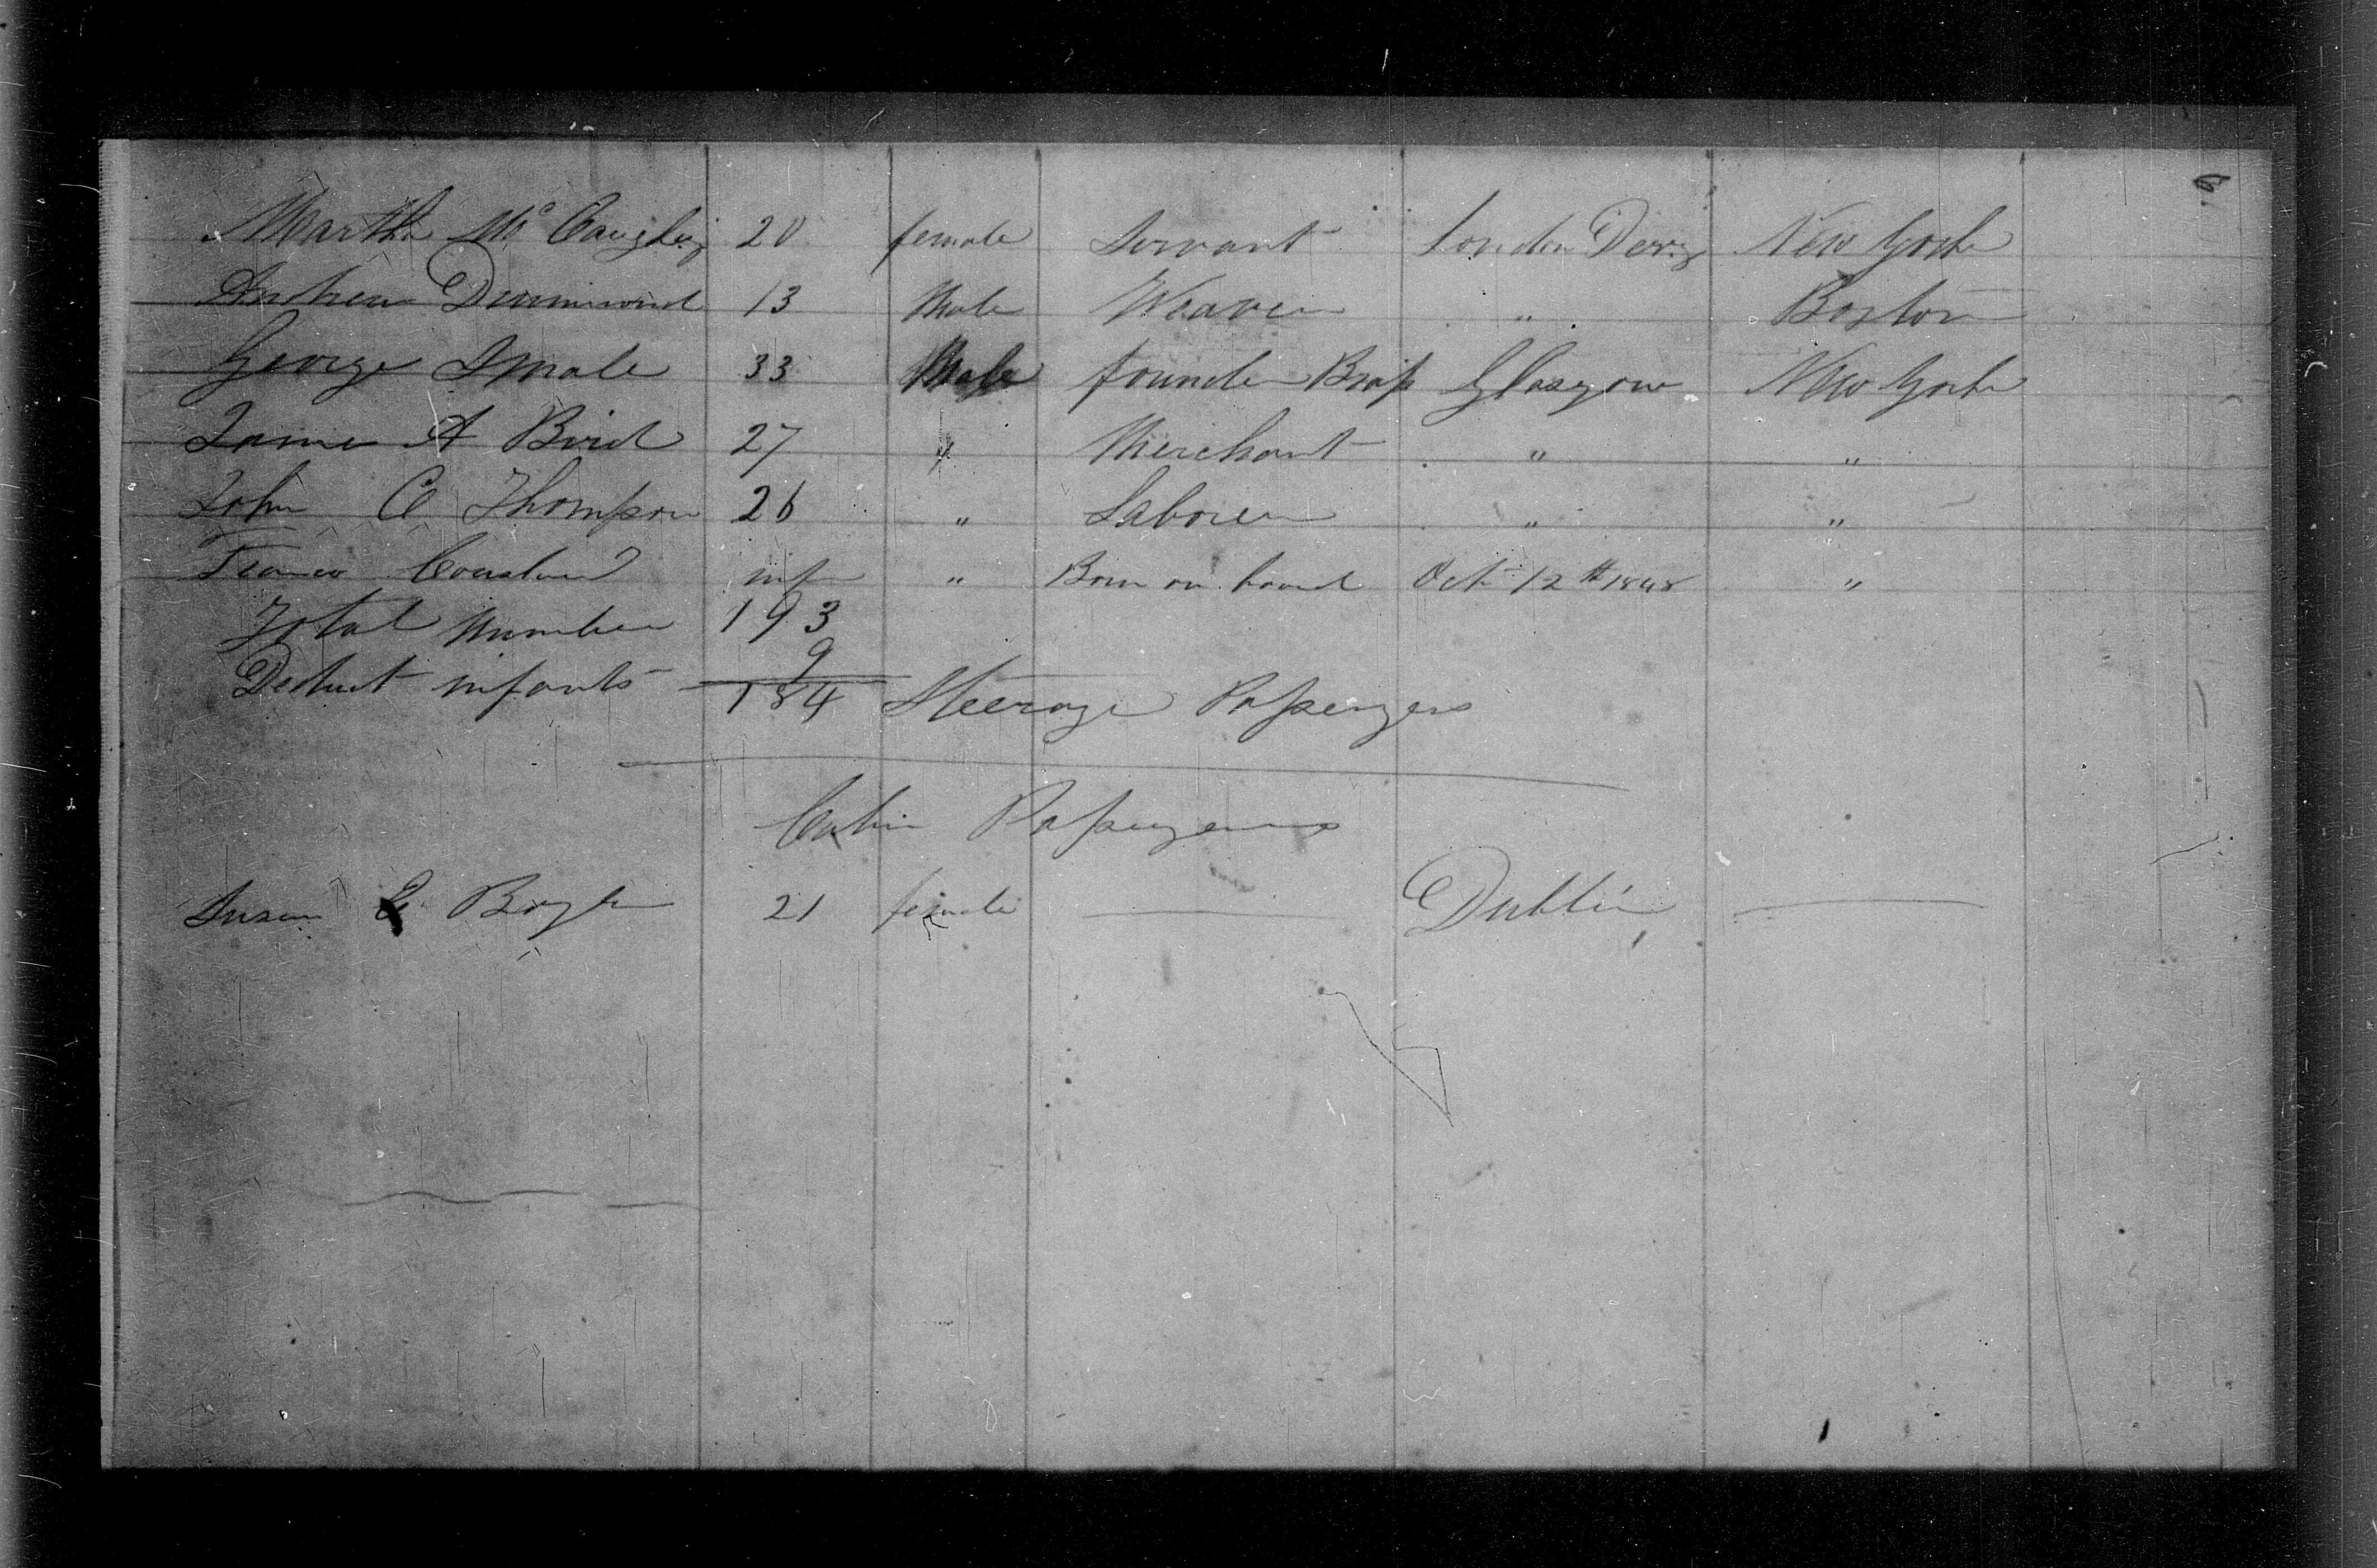 6
Martha Mc Caughey 20 female Servant London Derry New York
Andrew Drummond 13 Male Weaver " Boston
George Smale 33 Male founder Brass Glasgow New York
James A Bird 27 " Merchant " "
John C Thompson 26 " Laborer " "
inf " Born on board Oct 12th 1848 "
Total Number 193
9
Deduct infants 184 Steerage Passengers
Cabin Passengers
Susan E Boyle 21 female Dublin